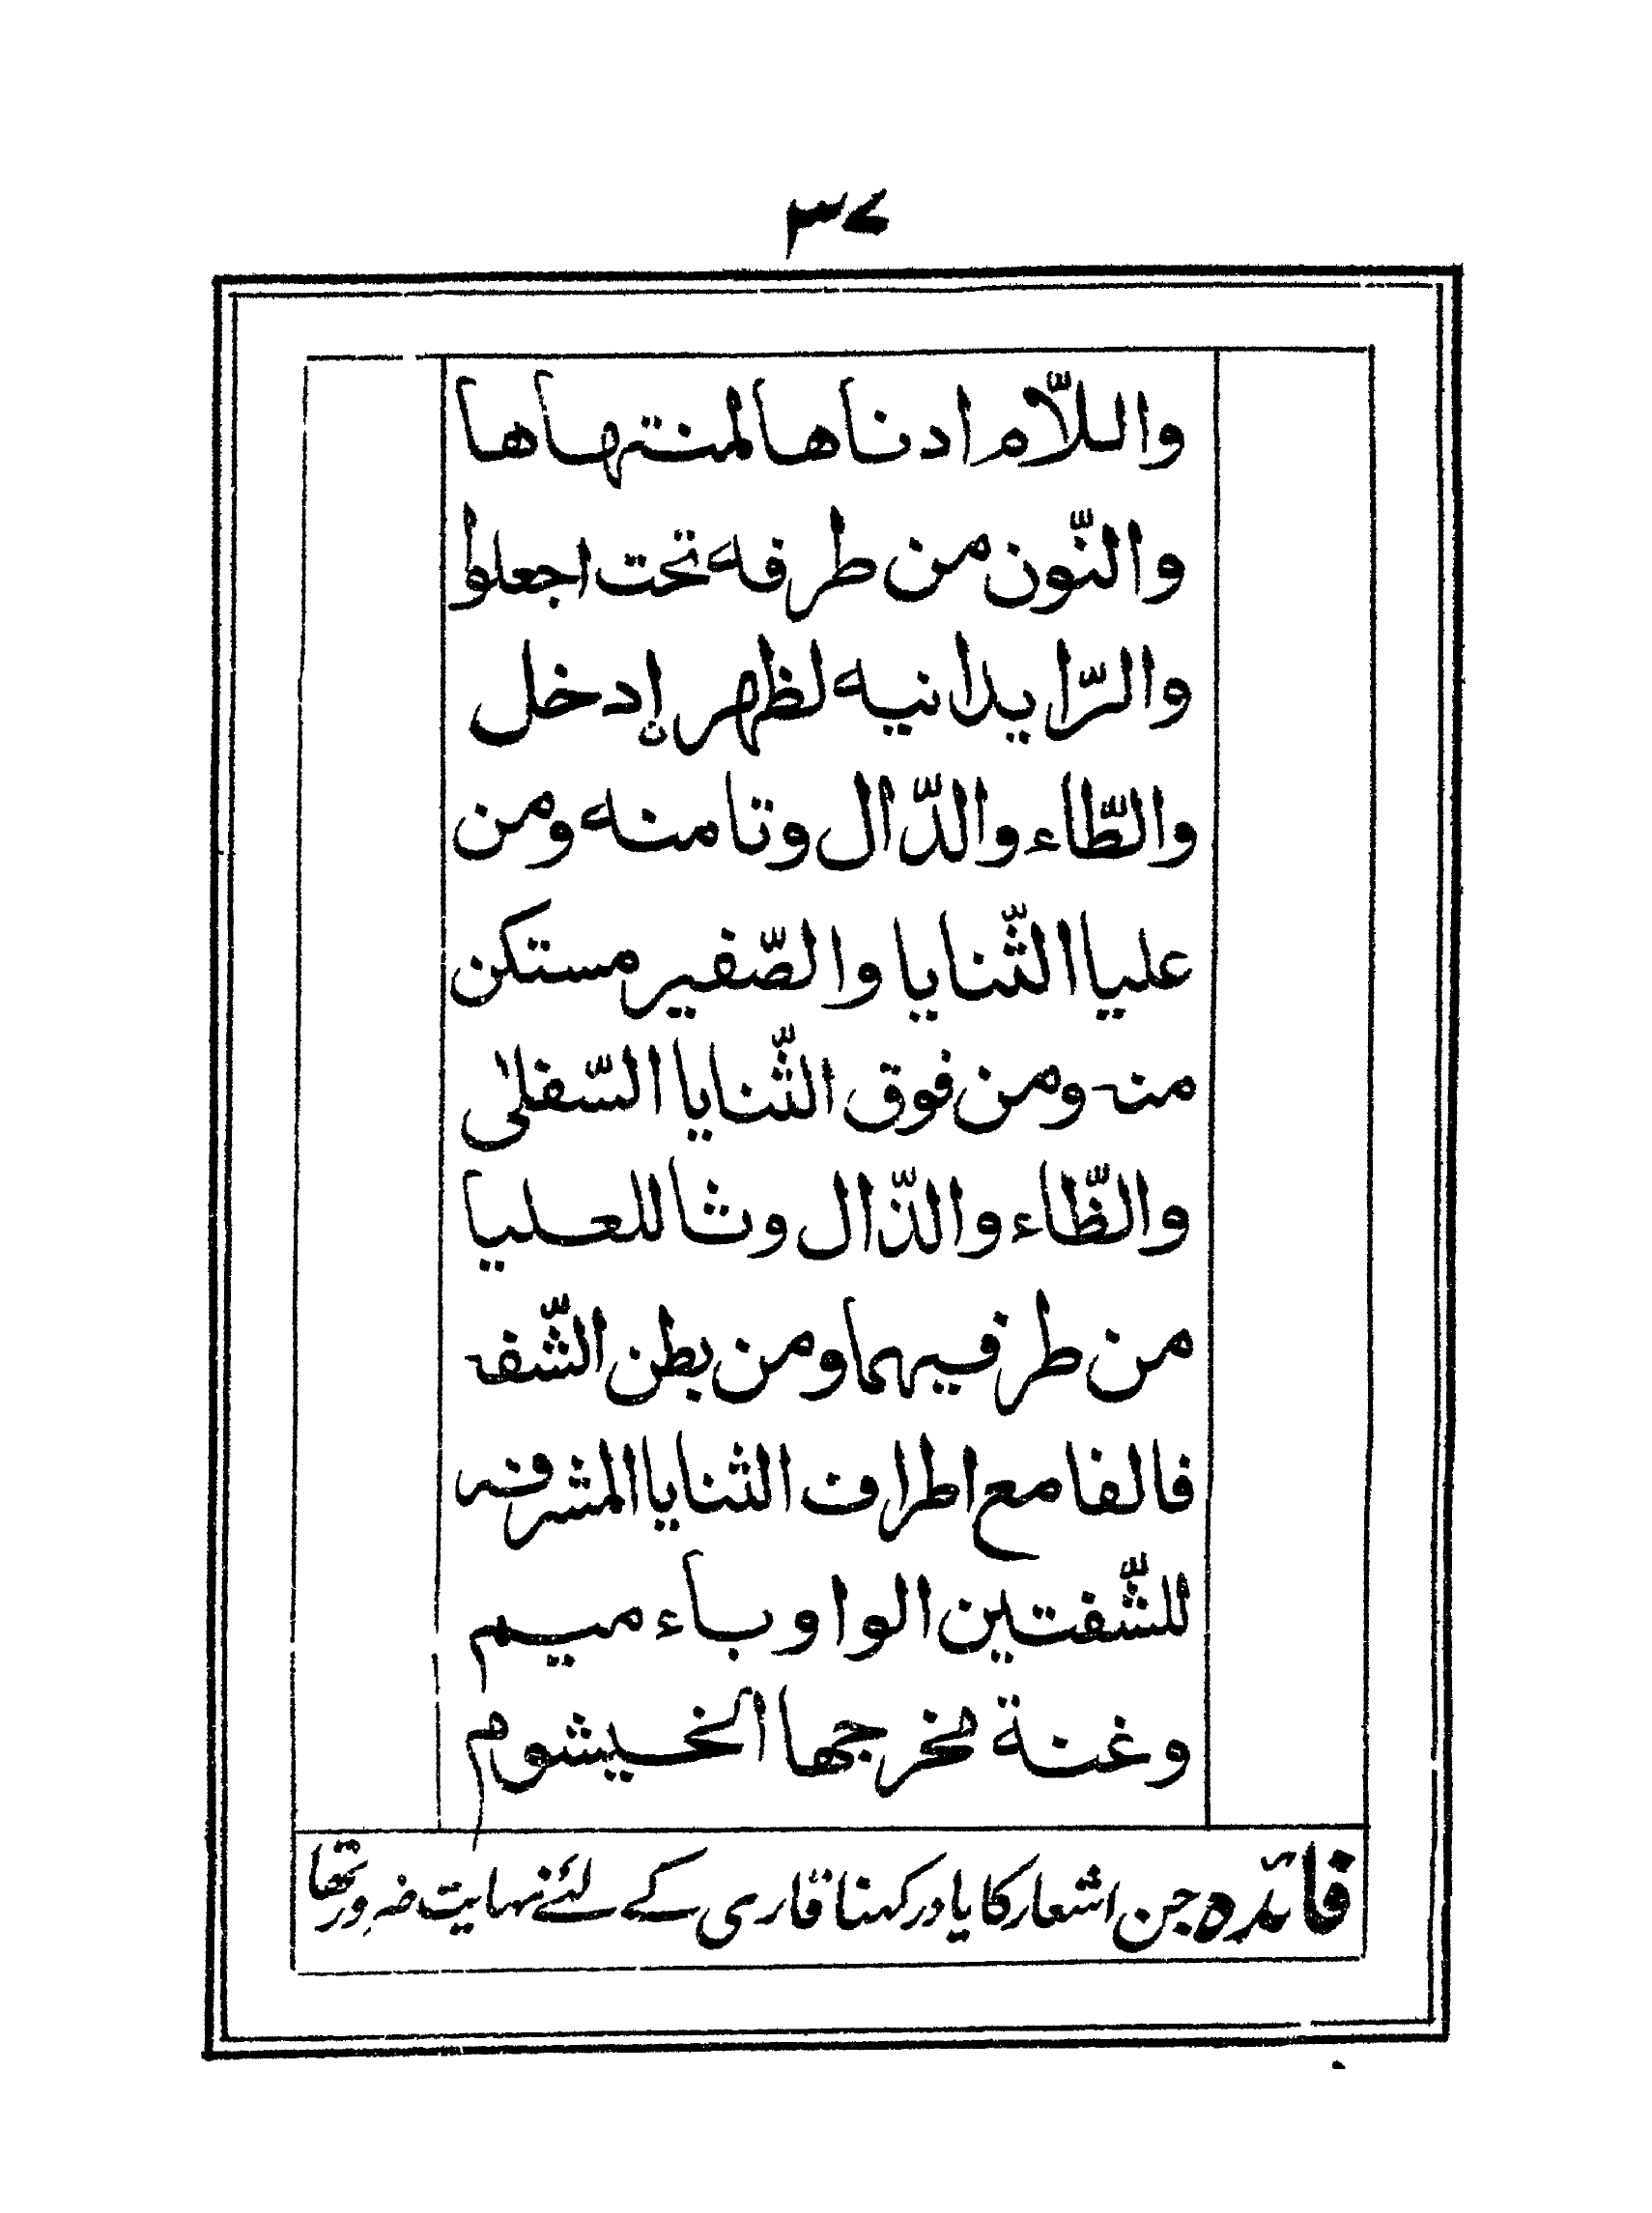 ۳۷
واللّام ادناها لمنتهاها
والنّون من طرفه تحت اجعلوا
والرّا يدانيه لظهر إدخل
والطّاء والدّال وتا منه ومن
عليا الثّنايا والصّفير مستكن
منه ومن فوق الثّنايا السّفلى
والظّاء والذّال وثا للعليا
من طرفيهما ومن بطن الشّفه
فالفا مع اطراف الثنايا المشرفه
للشّفتين الواو باء ميم
وغنة مخرجها الخيشوم
فائدہ جن اشعار کا یاد رکھنا قاری کے لئے نہایت ضرور تھا